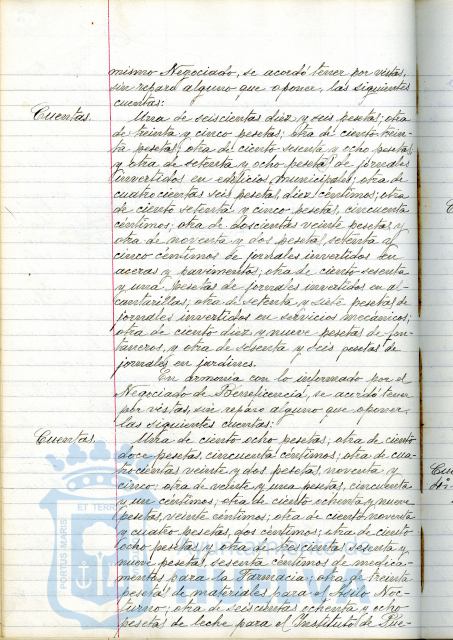 mismo Negociado, se acordó tener por vistas,
sin reparo alguno que oponer, las siguientes
cuentas:
Cuentas. Una de seiscientas diez y seis pesetas; otra
de treinta y cinco pesetas; otra de ciento trein-
ta pesetas; otra de ciento sesenta y ocho pesetas,
y otra de setenta y ocho pesetas de jornales
invertidos en edificios municipales; otra de
cuatrocientas seis pesetas, diez céntimos; otra
de ciento setenta y cinco pesetas, cincuenta
céntimos; otra de doscientas veinte pesetas, y
otra de noventa y dos pesetas, setenta y
cinco céntimos de jornales invertidos en
aceras y pavimentos; otra de ciento sesenta
y una pesetas de jornales invertidos en al-
cantarillas; otra de setenta y siete pesetas de
jornales invertidos en servicios mecánicos;
otra de ciento diez y nueve pesetas de fon-
taneros, y otra de sesenta y seis pesetas de
jornales en jardines.
En armonía con lo informado por el
Negociado de Beneficencia, se acordó tener
por vistas, sin reparo alguno que oponer,
las siguientes cuentas:
Cuentas. Una de ciento ocho pesetas; otra de ciento
doce pesetas, cincuenta céntimos; otra de cua-
trocientas veinte y dos pesetas, noventa y
cinco; otra de veinte y una pesetas, cincuenta
y un céntimos; otra de ciento ochenta y nueve
pesetas, veinte céntimos; otra de ciento noventa
y cuatro pesetas, dos céntimos; otra de ciento
ocho pesetas, y otra de trescientas sesenta y
nueve pesetas, sesenta céntimos de medica-
mentos para la Farmacia; otra de treinta
pesetas de materiales para el Asilo Noc-
turno; otra de seiscientas ochenta y ocho
pesetas de leche para el Instituto de Pue-
ET TERR
PORTUS MARIS